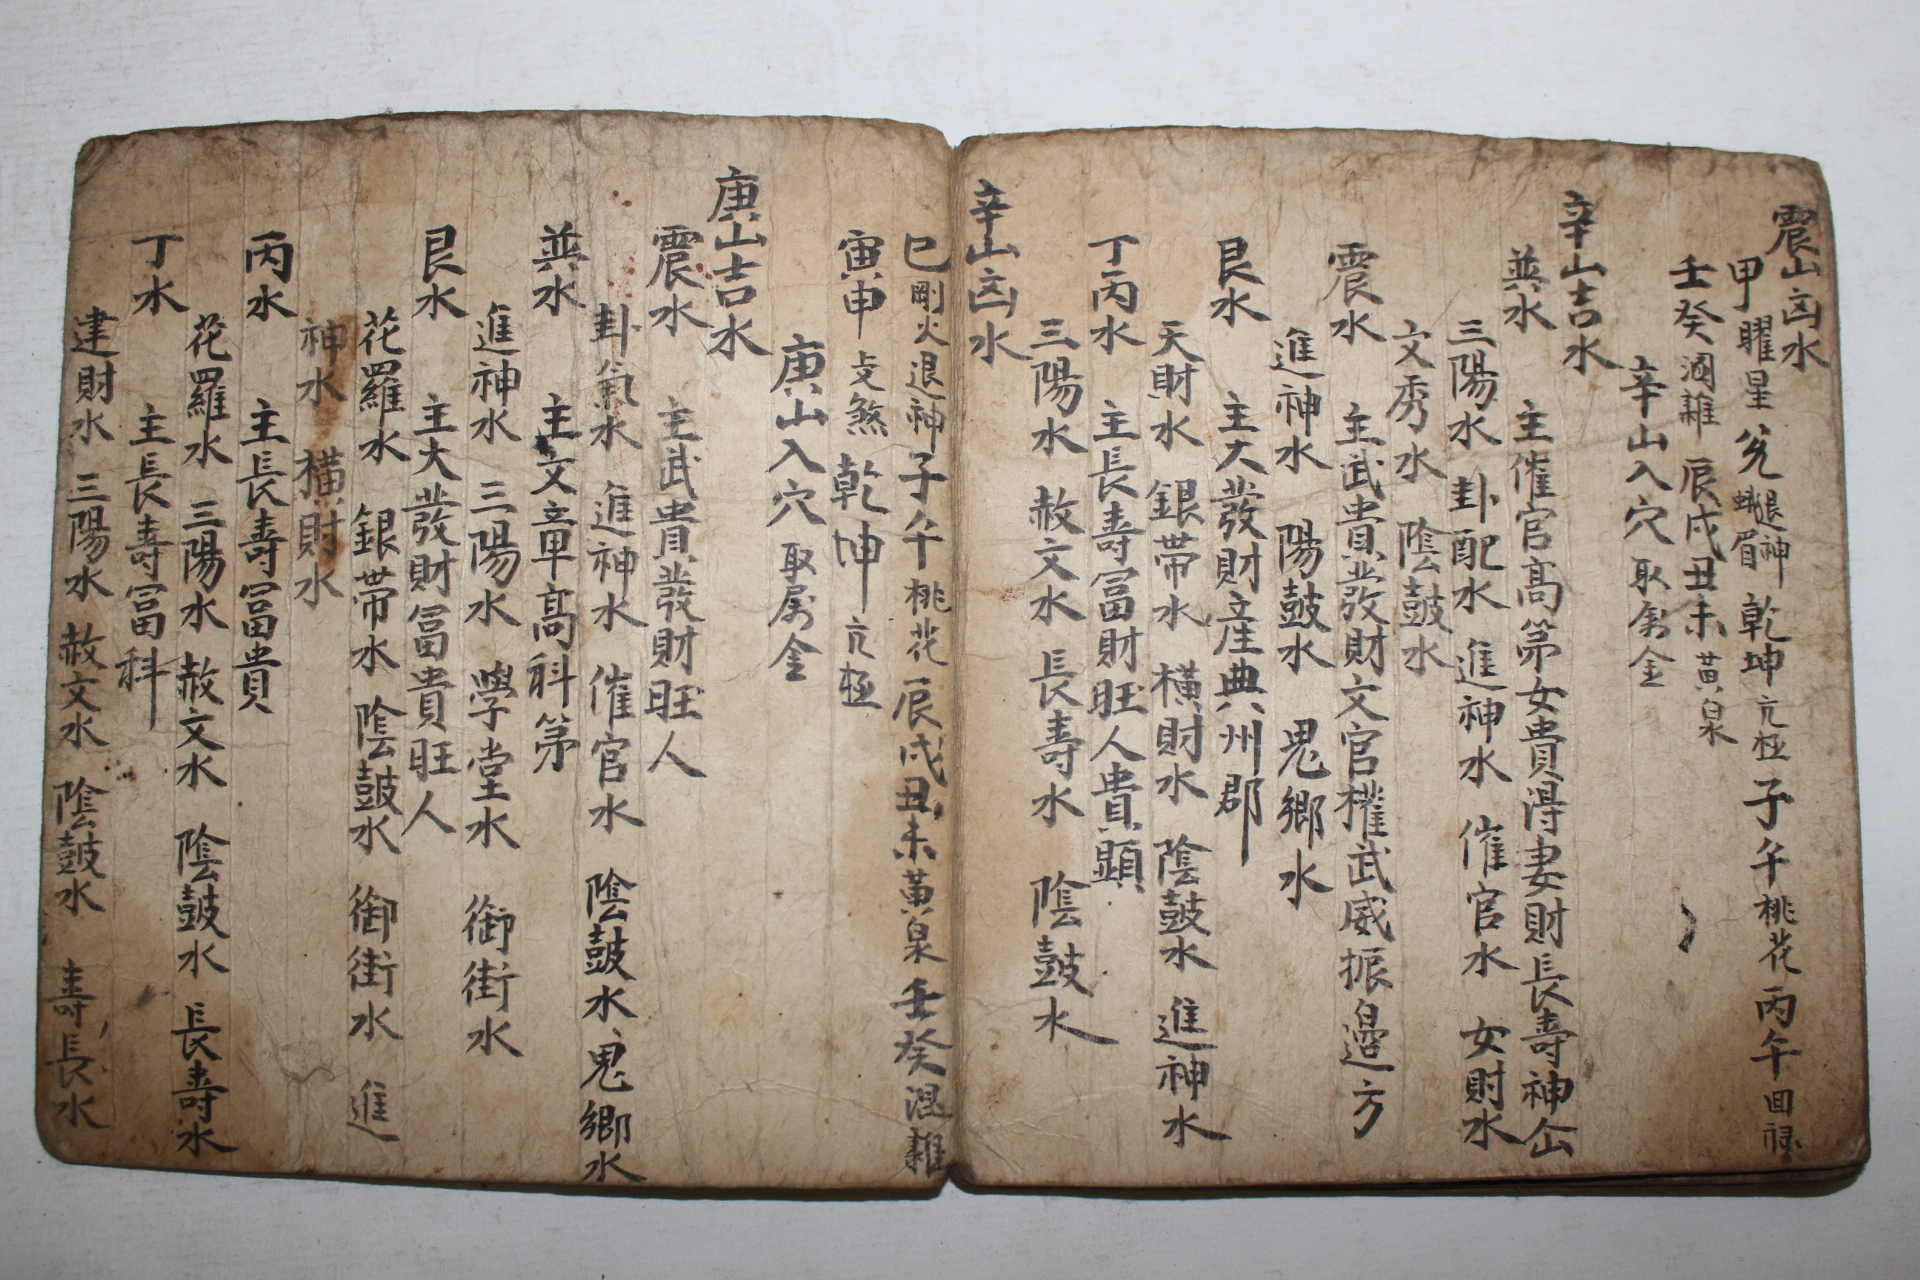 震山凶水
甲曜星 兌退神蛾眉 乾坤亢極 子午桃花 丙午回祿
壬癸溷雜 辰戌丑未黃泉
辛山入穴 取金
辛山吉水
巽水 主催官高第女貴得妻財長壽神仚
三陽水 卦配水 進神水 催官水 女財水
文秀水 陰鼓水
震水 主武貴發財文官權武威振邊方
進神水 陽鼓水 鬼鄉水
艮水 主大發財產典州郡
天財水 銀帶水 橫財水 陰鼓水 進神水
丁丙水 主長壽冨財旺人貴顯
三陽水 赦文水 長壽水 陰鼓水
辛山凶水
巳剛火退神 子午桃花 辰戌丑未黃泉 壬癸混雜
寅申攴煞 乾坤亢極
庚山入穴 取金
庚山吉水
震水 主武貴發財旺人
卦氣水 進神水 催官水 陰鼓水 鬼鄉水
巽水 主文章高科第
進神水 三陽水 學堂水 御街水
艮水 主大發財冨貴旺人
花羅水 銀帶水 陰鼓水 御街水 進
神水 橫財水
丙水 主長壽冨貴
花羅水 三陽水 赦文水 陰鼓水 長壽水
丁水 主長壽冨科
建財水 三陽水 赦文水 陰鼓水 壽長水